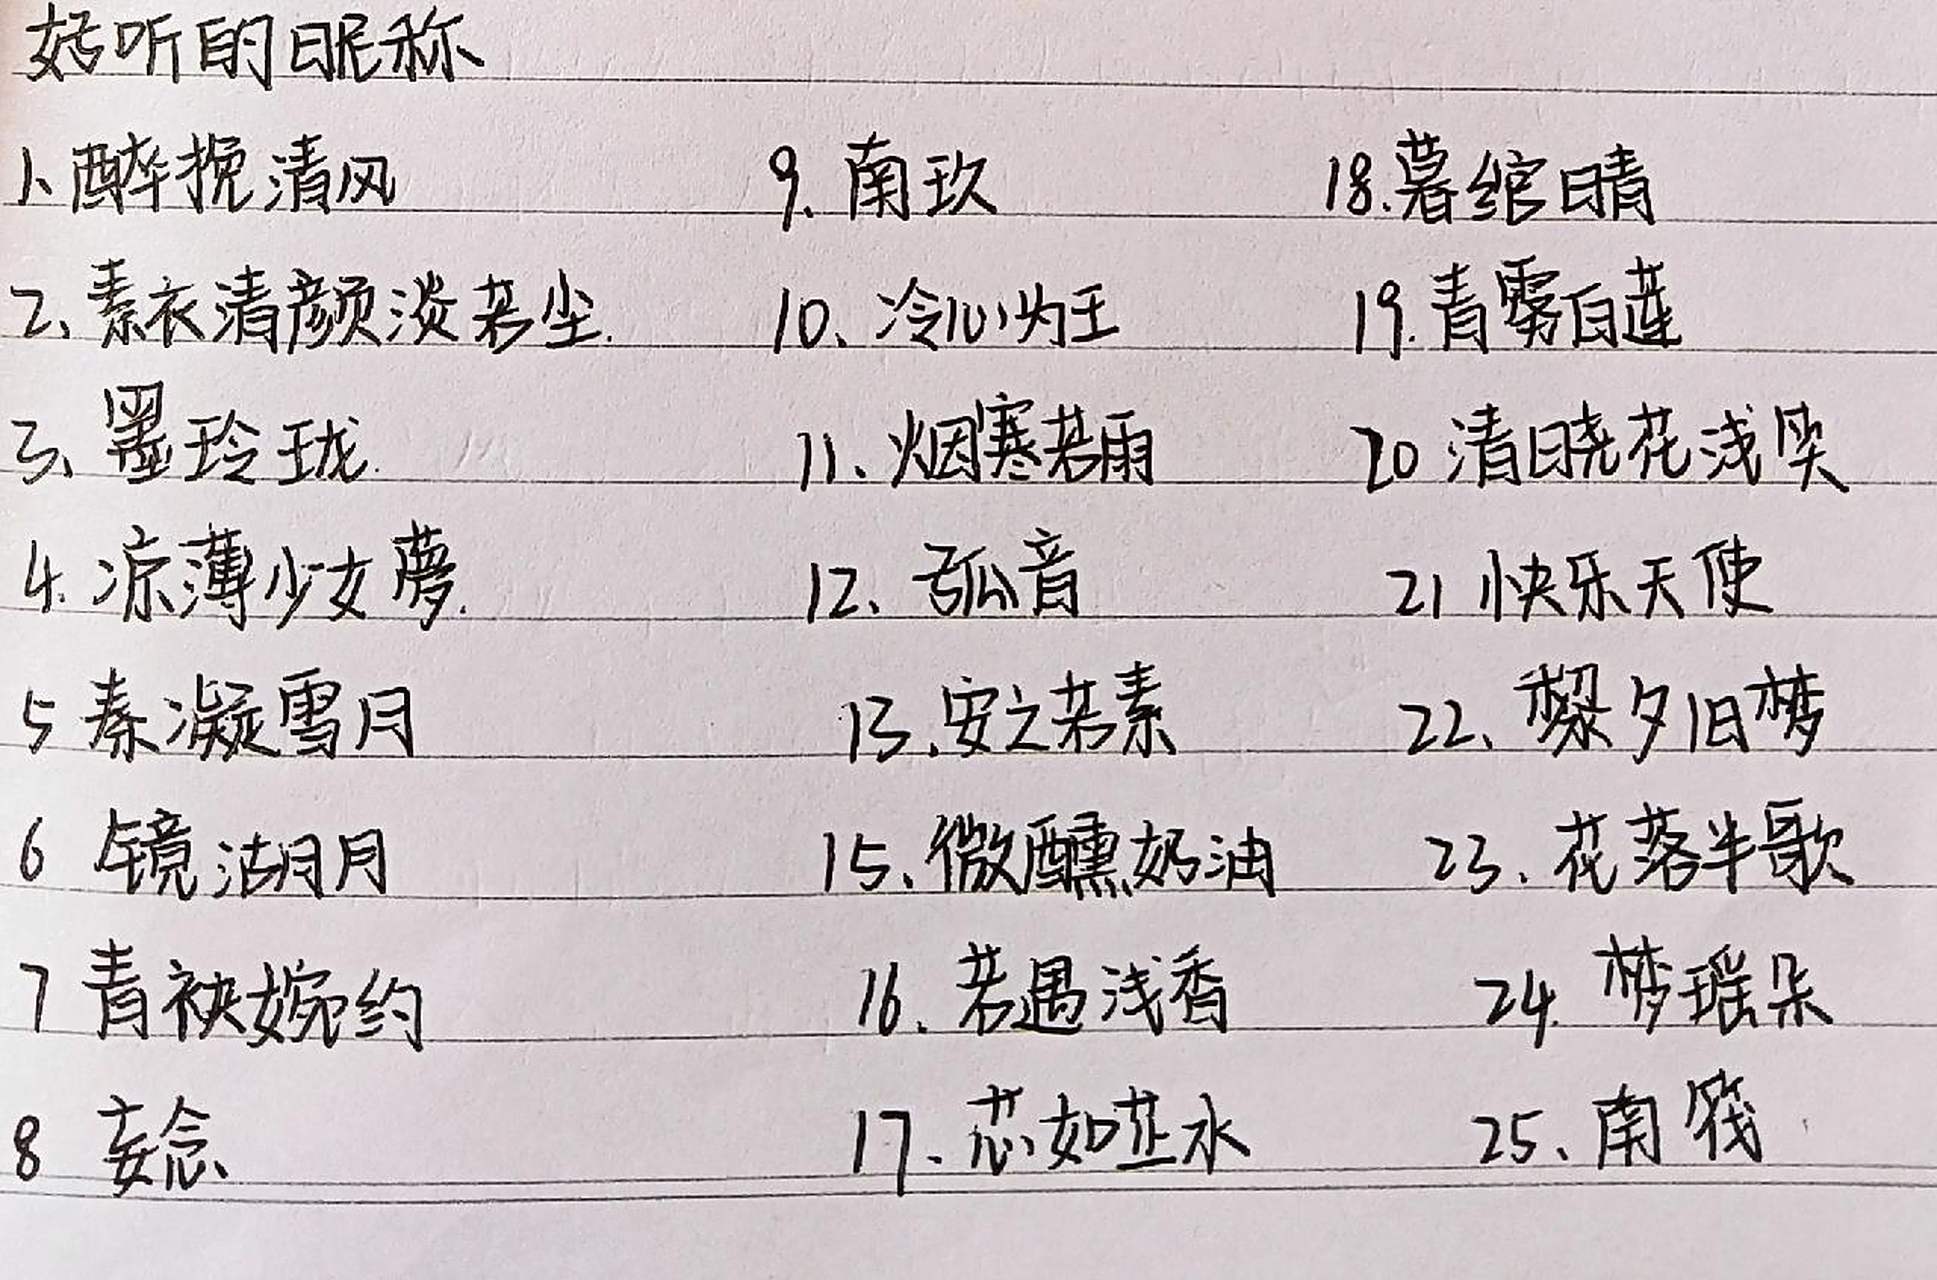 好听的昵称
1、醉挽清风
2、素衣清颜淡若尘.
3、墨玲珑.
4. 凉薄少女夢.
5 秦凝雪月
6 镜湖月
7 青袂婉约
8 妄念
9. 南玖
10、冷心为王
11、烟寒若雨
12、弧音
13.安之若素
15、微醺奶油
16. 若遇浅香
17. 芯如芷水
18.暮绾晴
19.青雾白莲
20 清晓花浅笑
21 快乐天使
22、夕旧梦
23、花落半歌
24. 梦瑶朵
25、南筏